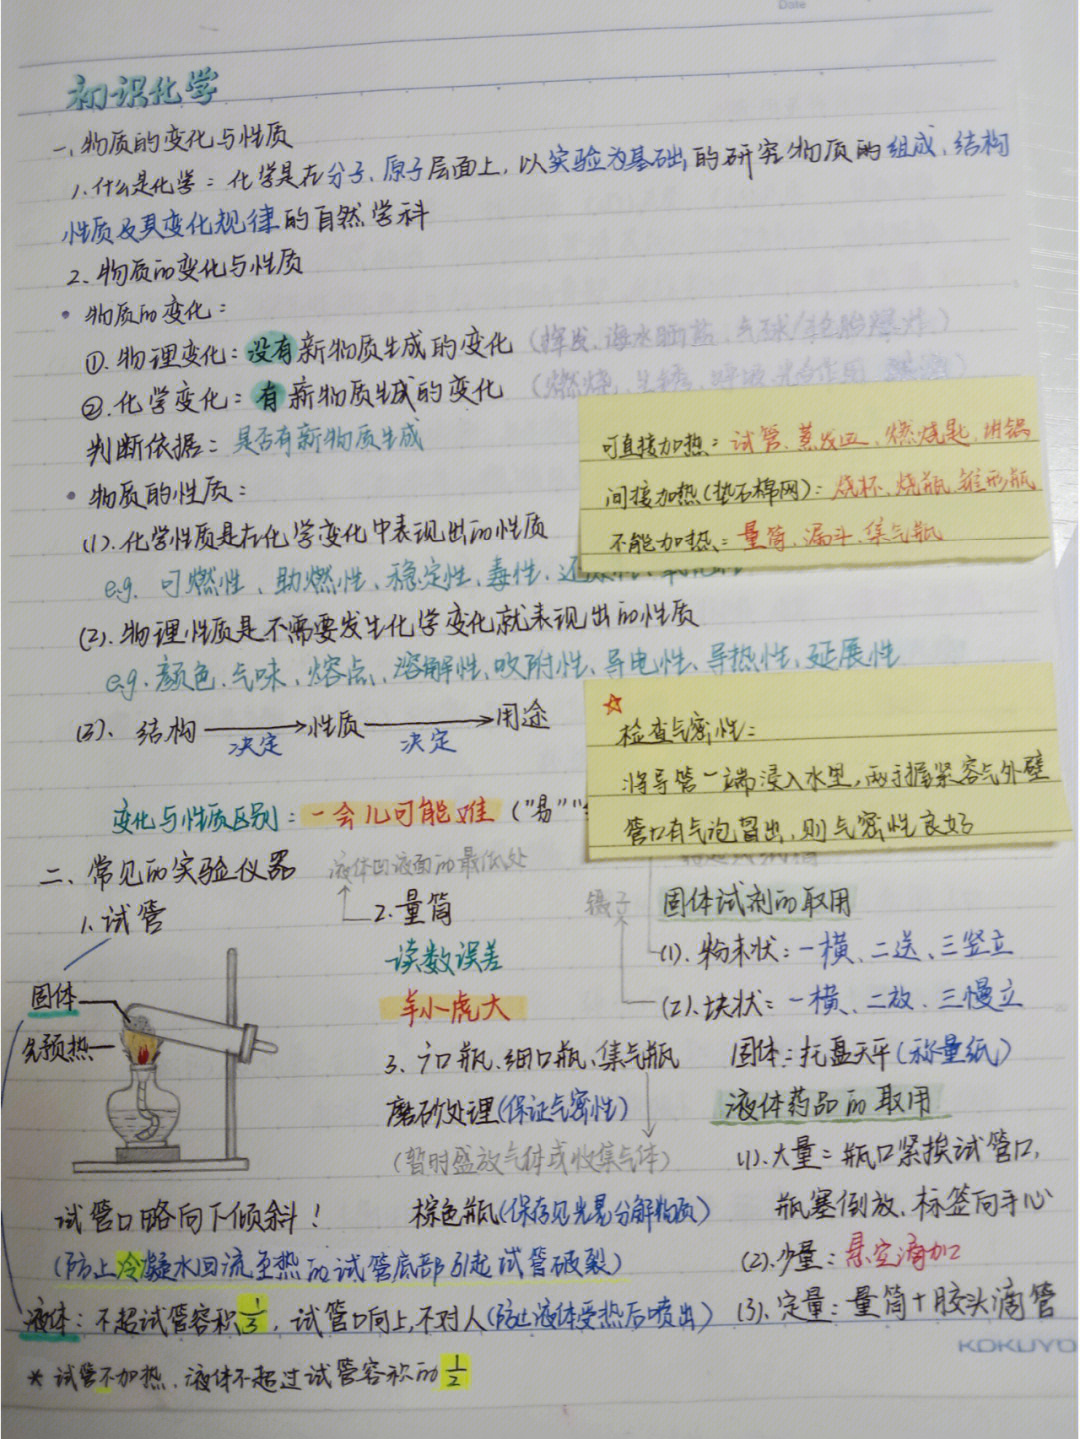 Date
初识化学
一、物质的变化与性质
1.什么是化学：化学是在分子、原子层面上，以实验为基础的研究物质的组成、结构
性质及其变化规律的自然学科
2、物质的变化与性质
• 物质的变化：
①.物理变化：没有新物质生成的变化（挥发、海水晒盐、气球/轮胎爆炸）
②.化学变化：有新物质生成的变化（燃烧、生锈、呼吸、光合作用
判断依据：是否有新物质生成
可直接加热：试管、蒸发皿、燃烧匙、坩锅
间接加热（垫石棉网）：烧杯、烧瓶、锥形瓶
不能加热：量筒、漏斗、集气瓶
• 物质的性质：
(1).化学性质是在化学变化中表现出的性质
e.g. 可燃性、助燃性、稳定性、毒性、
(2).物理性质是不需要发生化学变化就表现出的性质
e.g. 颜色、气味、熔点、溶解性、吸附性、导电性、导热性、延展性
(3)、结构 → 性质 → 用途
决定 决定
☆
检查气密性：
将导管一端浸入水里，两手握紧容气外壁
管口有气泡冒出，则气密性良好
变化与性质区别：一会儿可能难（"易"
二、常见的实验仪器
1.试管
固体
先预热
试管口略向下倾斜！
（防止冷凝水回流至热的试管底部引起试管破裂）
液体：不超试管容积1/3，试管口向上，不对人（防止液体受热后喷出）
* 试管不加热，液体不超过试管容积的1/2
液体凹液面的最低处
2.量筒
读数误差
羊小虎大
3、广口瓶、细口瓶、集气瓶
磨砂处理（保证气密性）
（暂时盛放气体或收集气体）
棕色瓶（保存见光易分解物质）
镊子
固体试剂的取用
(1).粉末状：一横、二送、三竖立
(2).块状：一横、二放、三慢立
固体：托盘天平（称量纸）
液体药品的取用
(1).大量：瓶口紧挨试管口，
瓶塞倒放，标签向手心
(2).少量：悬空滴加
(3).定量：量筒+胶头滴管
KOKUYO